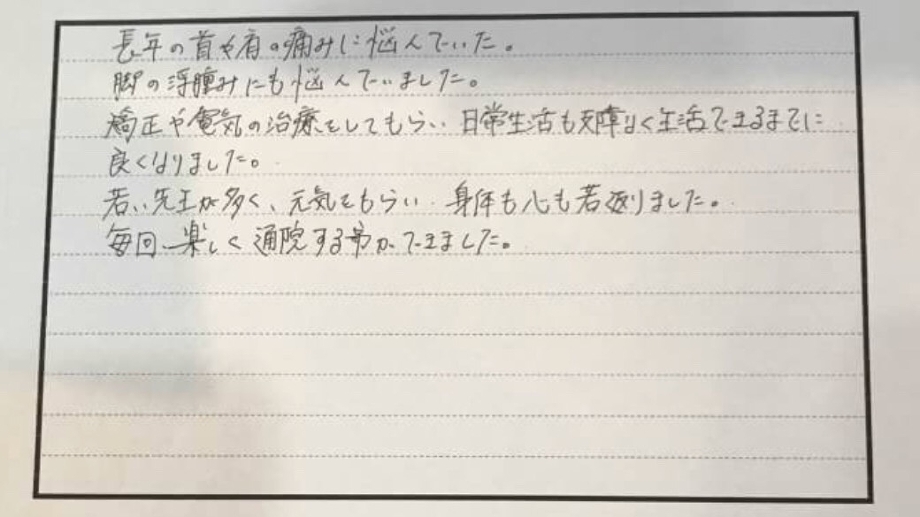 長年の首や肩の痛みに悩んでいた。
脚の浮腫みにも悩んでいました。
矯正や電気の治療をしてもらい 日常生活も支障なく生活できるまでに
良くなりました。
若い先生が多く、元気をもらい 身体も心も若返りました。
毎回、楽しく通院する事ができました。